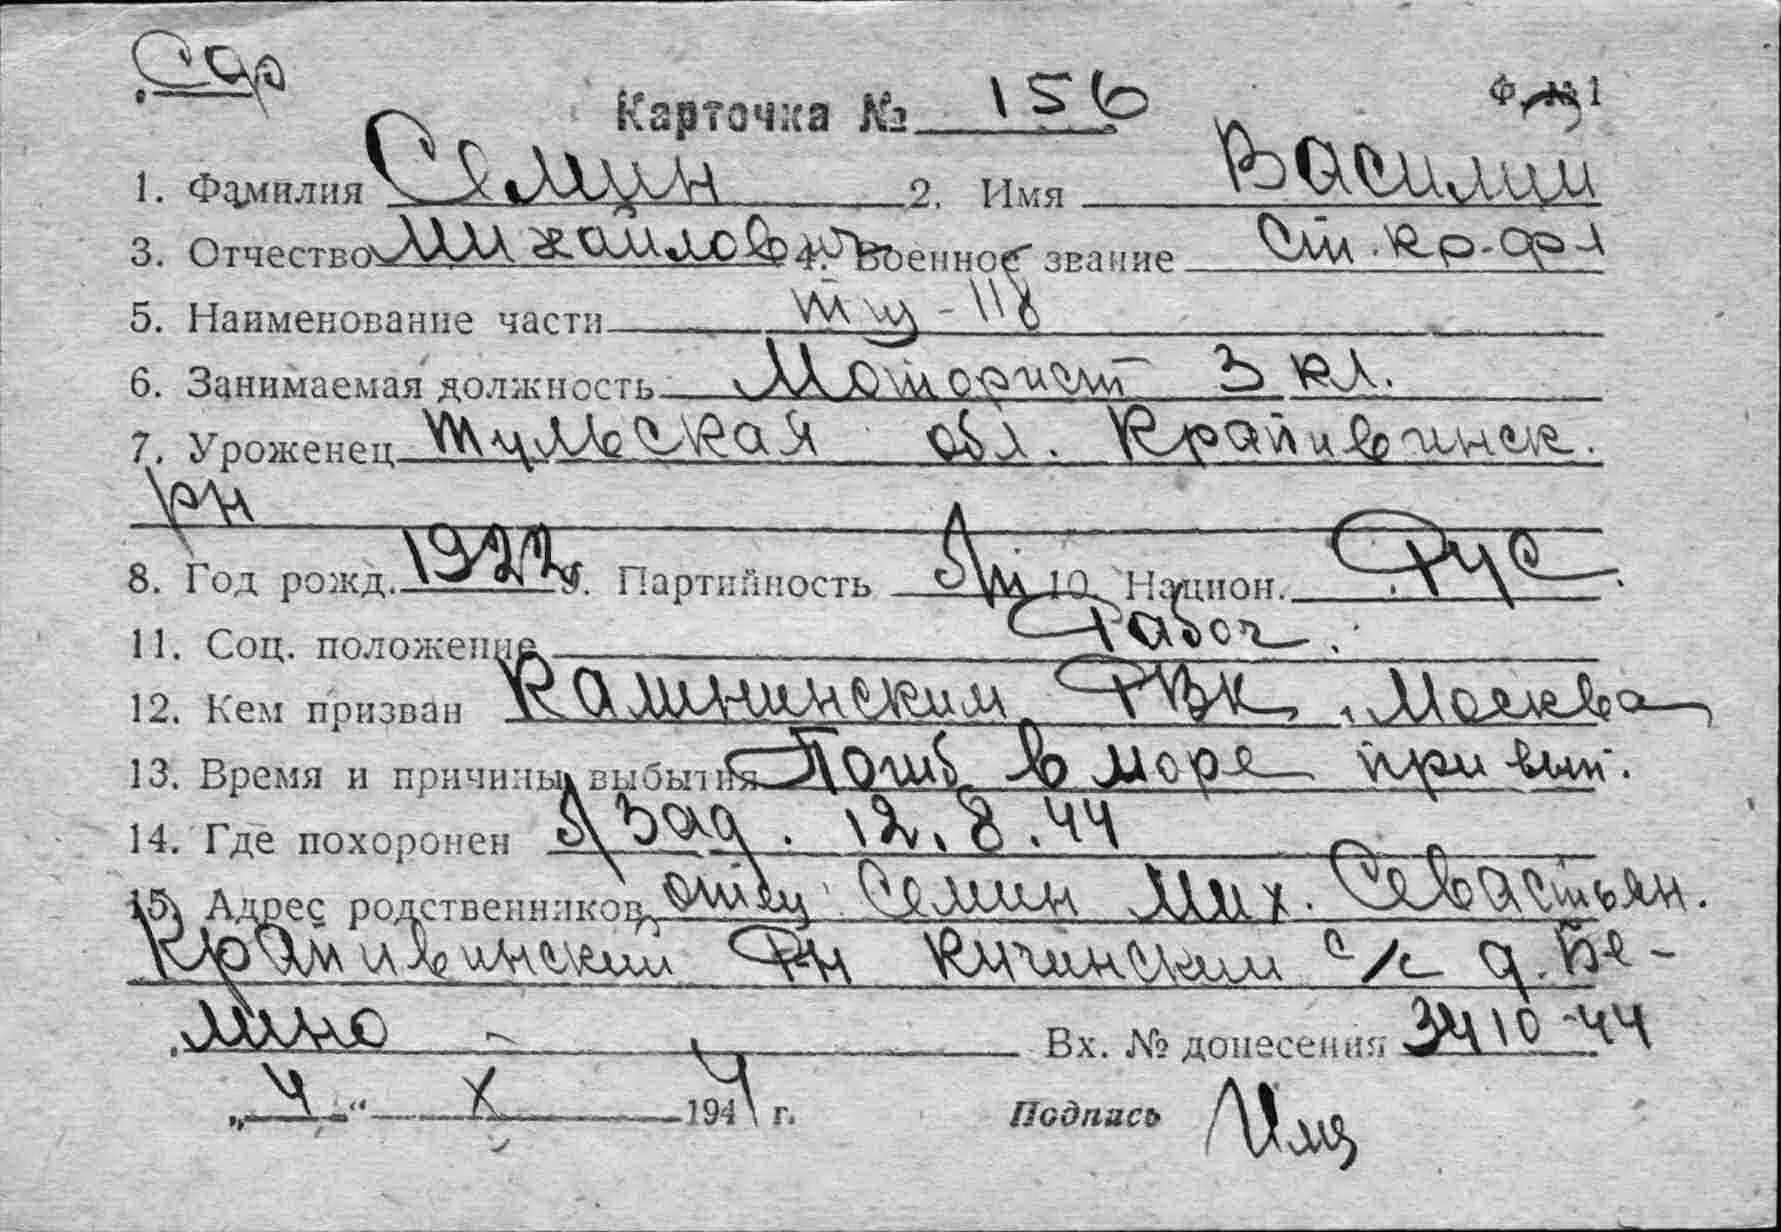 Карточка № 156
1. Фамилия Семин 2. Имя Василий
3. Отчество Михайлович 4. Военное звание Ст. кр-фл
5. Наименование части тщ-118
6. Занимаемая должность Моторист 3 кл.
7. Уроженец Тульская обл. Крапивинск.
рн
8. Год рожд. 1922 9. Партийность б/п 10. Национ. Рус.
11. Соц. положение Рабоч.
12. Кем призван Калининским РВК, Москва
13. Время и причины выбытия Погиб в море при вып.
14. Где похоронен б/зад. 12.8.44
15. Адрес родственников отец Семин Мих. Севастьян.
Крапивинский рн Кучинский с/с д. Бе-
лино Вх. № донесения 3410-44
„4“ X 1944 г. Подпись